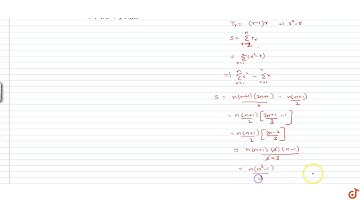 Tr = (r-1)r = r²-r
S = Σ Tr
= Σ (r²-r)
= Σ r² - Σ r
S = n(n+1)(2n+1)/6 - n(n+1)/2
= n(n+1)/2 [2n+1/3 - 1]
= n(n+1)/2 [2n-2/3]
= n(n+1)(2)(n-1)/2×3
= n(n²-1)/3